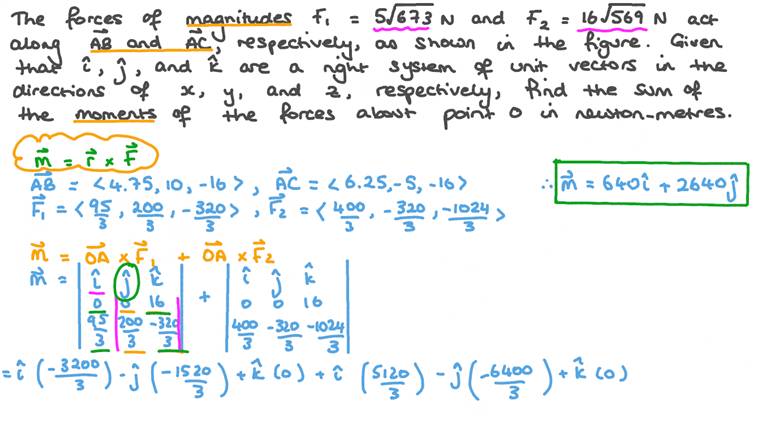 The forces of magnitudes F₁ = 5√673 N and F₂ = 16√569 N act
along A⃗B⃗ and A⃗C⃗, respectively, as shown in the figure. Given
that î, ĵ, and k̂ are a right system of unit vectors in the
directions of x, y, and z, respectively, find the sum of
the moments of the forces about point O in newton-metres.
m⃗ = r⃗ × F⃗
A⃗B⃗ = <4.75, 10, -16>, A⃗C⃗ = <6.25, -5, -16>
∴ m⃗ = 640î + 2640ĵ
F⃗₁ = <95/3, 200/3, -320/3>, F⃗₂ = <400/3, -320/3, -1024/3>
m⃗ = O⃗A⃗ × F⃗₁ + O⃗A⃗ × F⃗₂
m⃗ = | î ĵ k̂ | + | î ĵ k̂ |
| 0 0 16 | | 0 0 16 |
| 95/3 200/3 -320/3 | | 400/3 -320/3 -1024/3 |
= î (-3200/3) - ĵ (-1520/3) + k̂ (0) + î (5120/3) - ĵ (-6400/3) + k̂ (0)